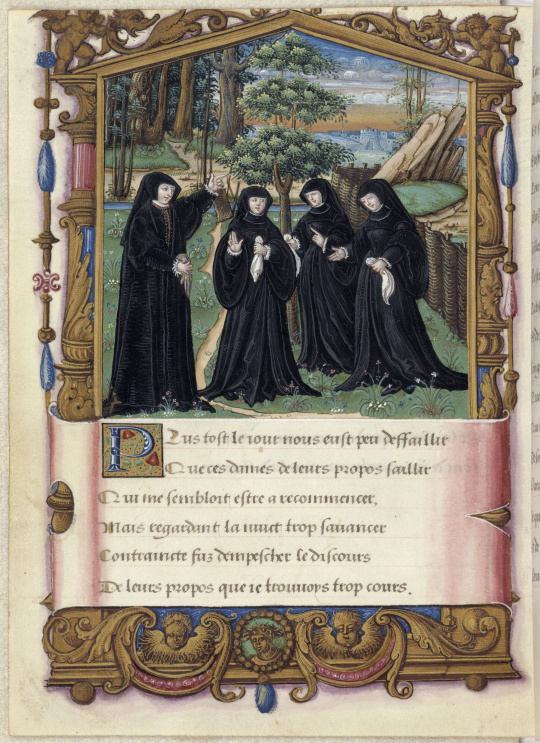 Plus tost le iour nous eust peu deffaillir
Que ces dames de leurs propos saillir
Qui me sembloit estre a recommencer,
Mais regardant la nuict trop sauancer
Contraincte fuz dempescher le discours
De leurs propos que ie trouuoys trop cours.